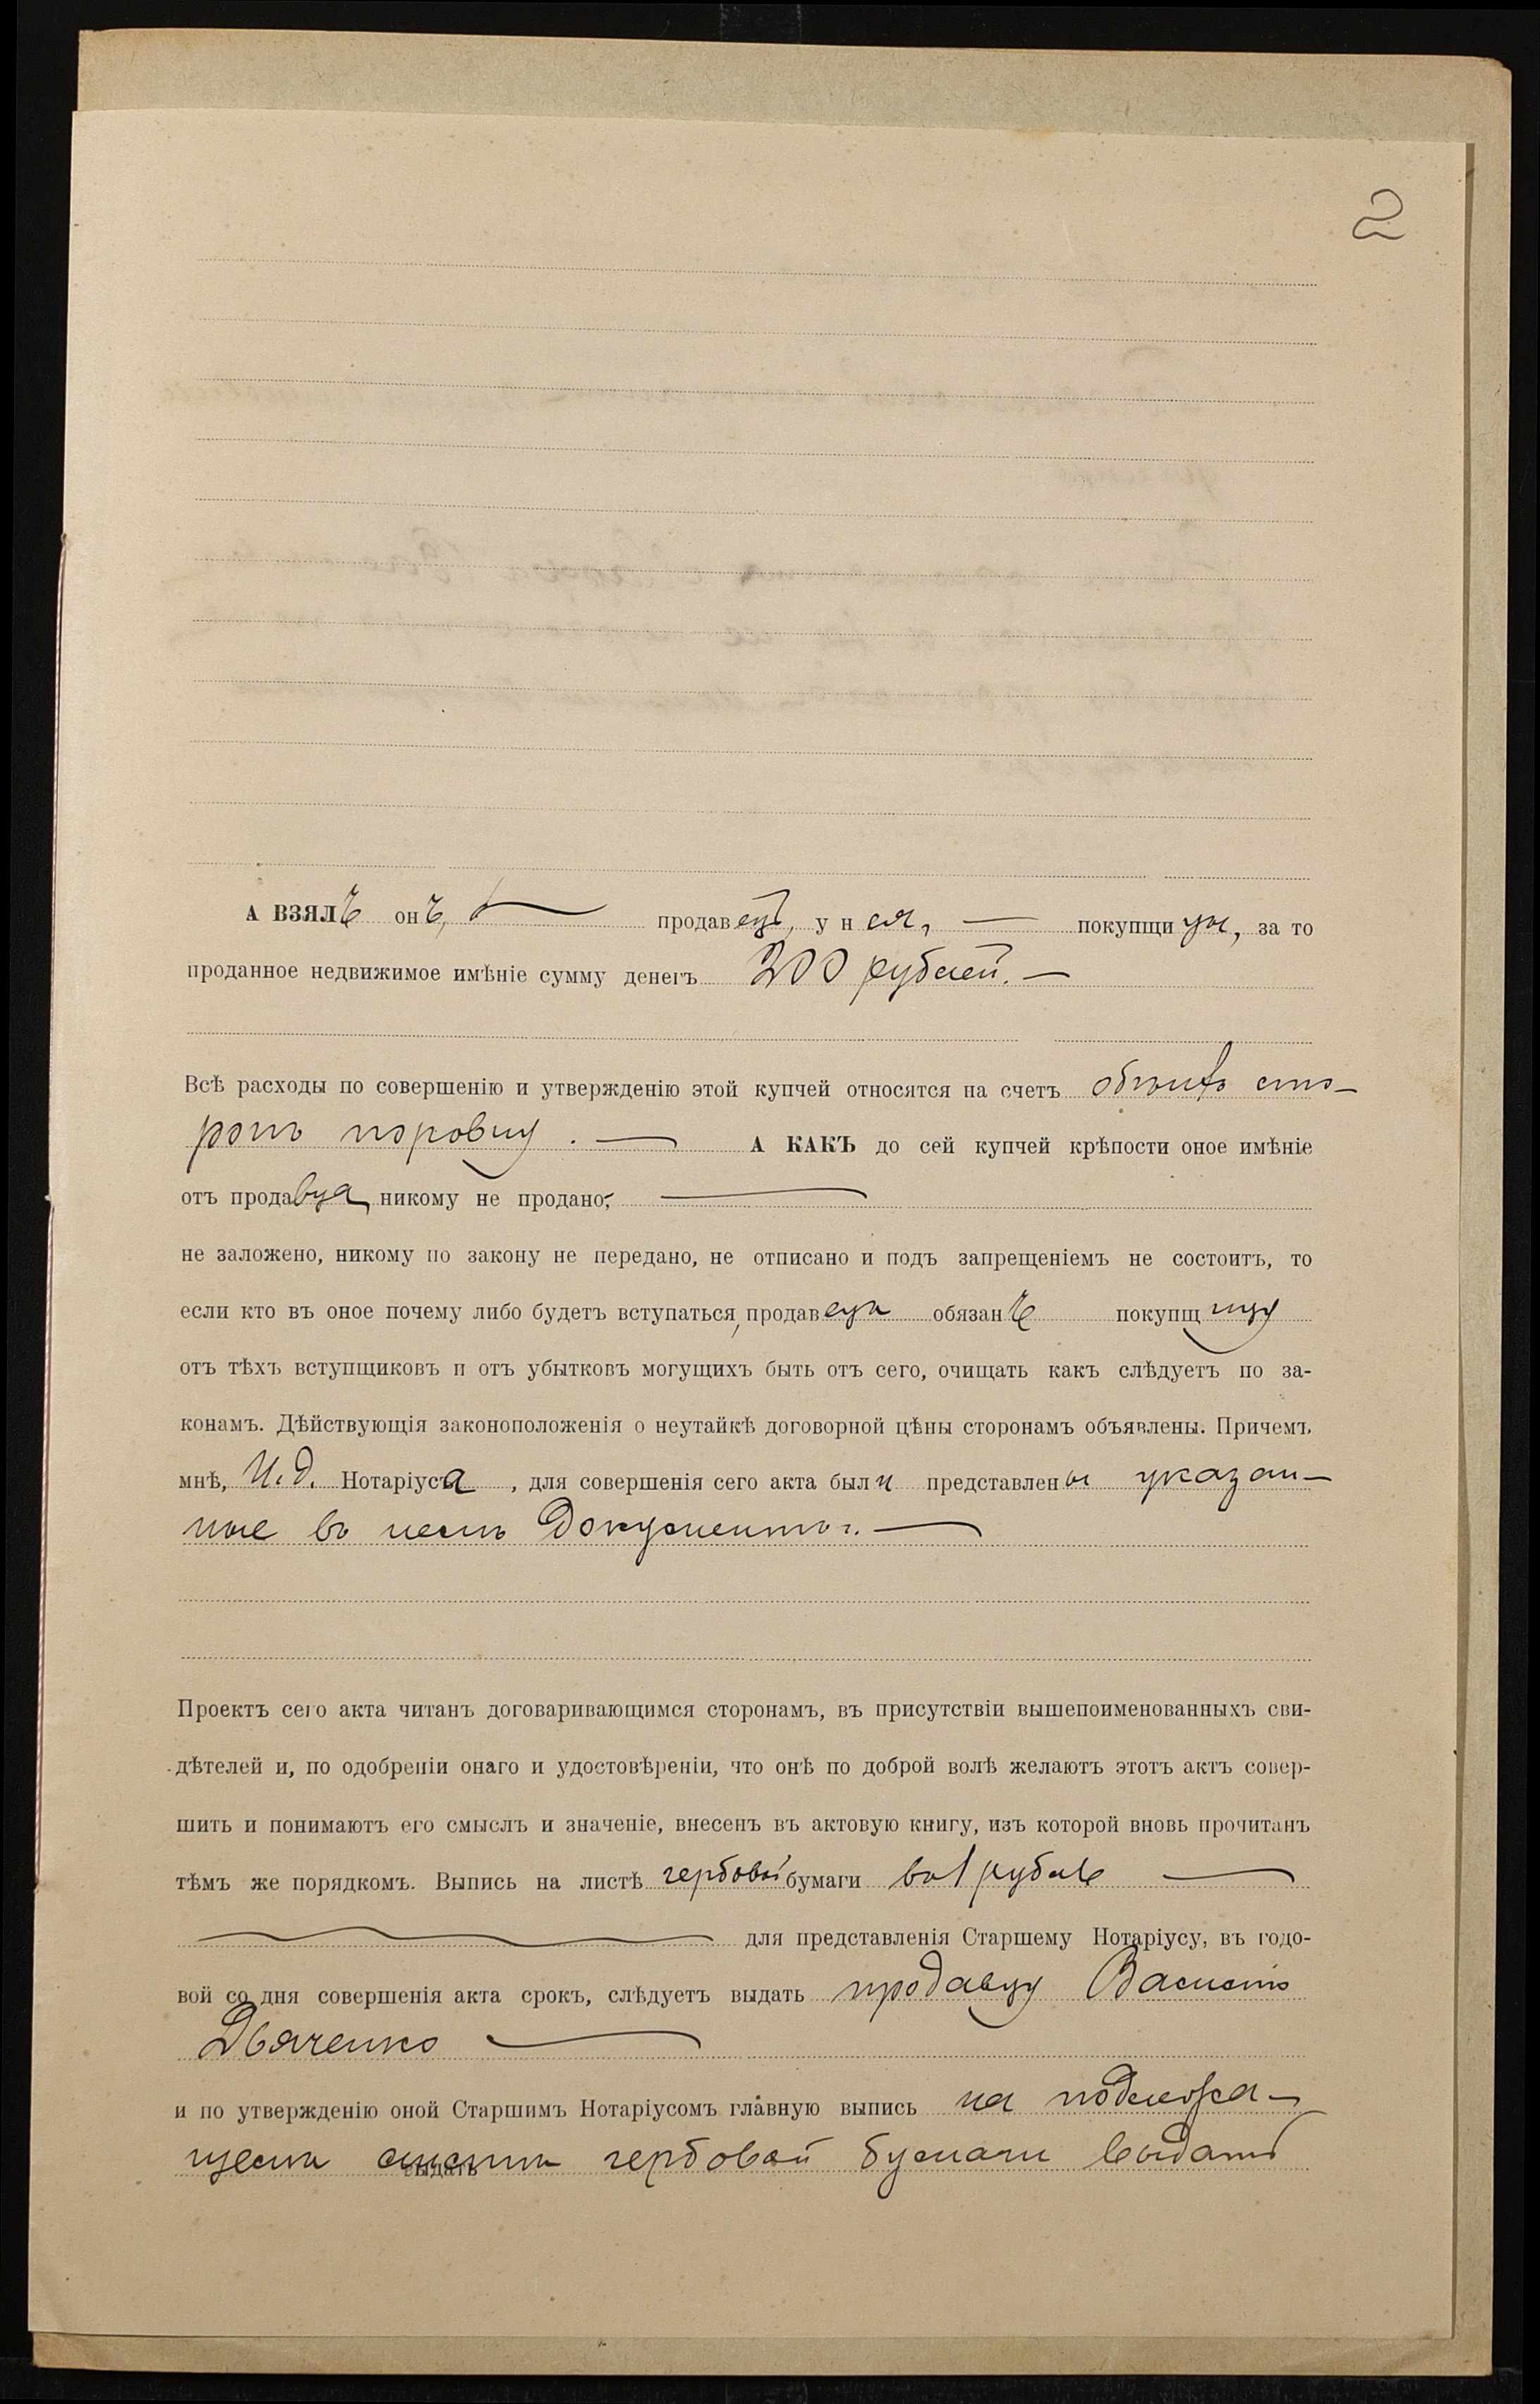 2
А ВЗЯЛЪ онъ, продавецъ, у нея, — покупщицы, за то
проданное недвижимое имѣніе сумму денегъ 300 рублей. —
Всѣ расходы по совершенію и утвержденію этой купчей относятся на счетъ обѣихъ сто-
ронъ поровну. — А КАКЪ до сей купчей крѣпости оное имѣніе
отъ продавца никому не продано, —
не заложено, никому по закону не передано, не отписано и подъ запрещеніемъ не состоитъ, то
если кто въ оное почему либо будетъ вступаться, продавецъ обязанъ покупщицу
отъ тѣхъ вступщиковъ и отъ убытковъ могущихъ быть отъ сего, очищать какъ слѣдуетъ по за-
конамъ. Дѣйствующія законоположенія о неутайкѣ договорной цѣны сторонамъ объявлены. Причемъ
мнѣ, И. д. Нотаріуса, для совершенія сего акта были представлены указан-
ные въ немъ документы. —
Проектъ сего акта читанъ договаривающимся сторонамъ, въ присутствіи вышепоименованныхъ сви-
дѣтелей и, по одобреніи онаго и удостовѣреніи, что онѣ по доброй волѣ желаютъ этотъ актъ совер-
шить и понимаютъ его смыслъ и значеніе, внесенъ въ актовую книгу, изъ которой вновь прочитанъ
тѣмъ же порядкомъ. Выпись на листѣ гербовой бумаги въ 1 рубль —
для представленія Старшему Нотаріусу, въ годо-
вой со дня совершенія акта срокъ, слѣдуетъ выдать продавцу
Дьяченко —
и по утвержденію оной Старшимъ Нотаріусомъ главную выпись на подлежа-
щемъ листѣ гербовой бумаги выдать
выдать